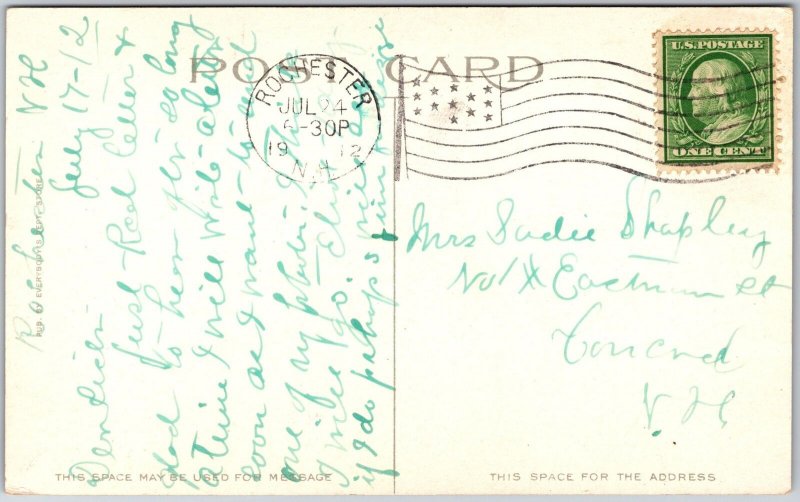 POST CARD
ROCHESTER
JUL 24
6-30P
1912
N.H.
U.S. POSTAGE
ONE CENT
Rochester N H
July 17-12
Dear
just Rec letter &
glad to hear after so long
a time I will write a letter
soon as I want to
one of my
I will go
if I do
Mrs Sadie Shapley
No Eastman st
Concord
N. H.
PUB. BY EVERYBODY'S DEPT. STORE
THIS SPACE MAY BE USED FOR MESSAGE
THIS SPACE FOR THE ADDRESS